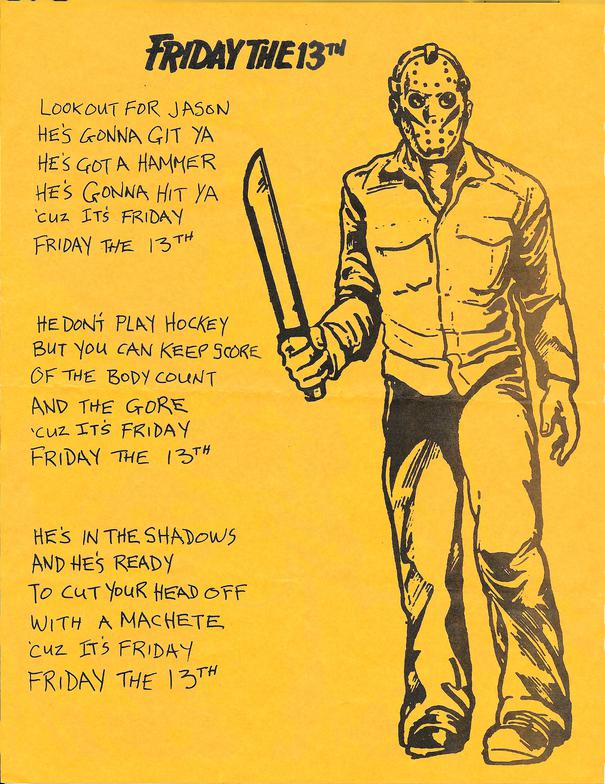 FRIDAY THE 13TH
LOOKOUT FOR JASON
HE'S GONNA GIT YA
HE'S GOT A HAMMER
HE'S GONNA HIT YA
'CUZ IT'S FRIDAY
FRIDAY THE 13TH
HE DON'T PLAY HOCKEY
BUT YOU CAN KEEP SCORE
OF THE BODY COUNT
AND THE GORE
'CUZ IT'S FRIDAY
FRIDAY THE 13TH
HE'S IN THE SHADOWS
AND HE'S READY
TO CUT YOUR HEAD OFF
WITH A MACHETE
'CUZ IT'S FRIDAY
FRIDAY THE 13TH